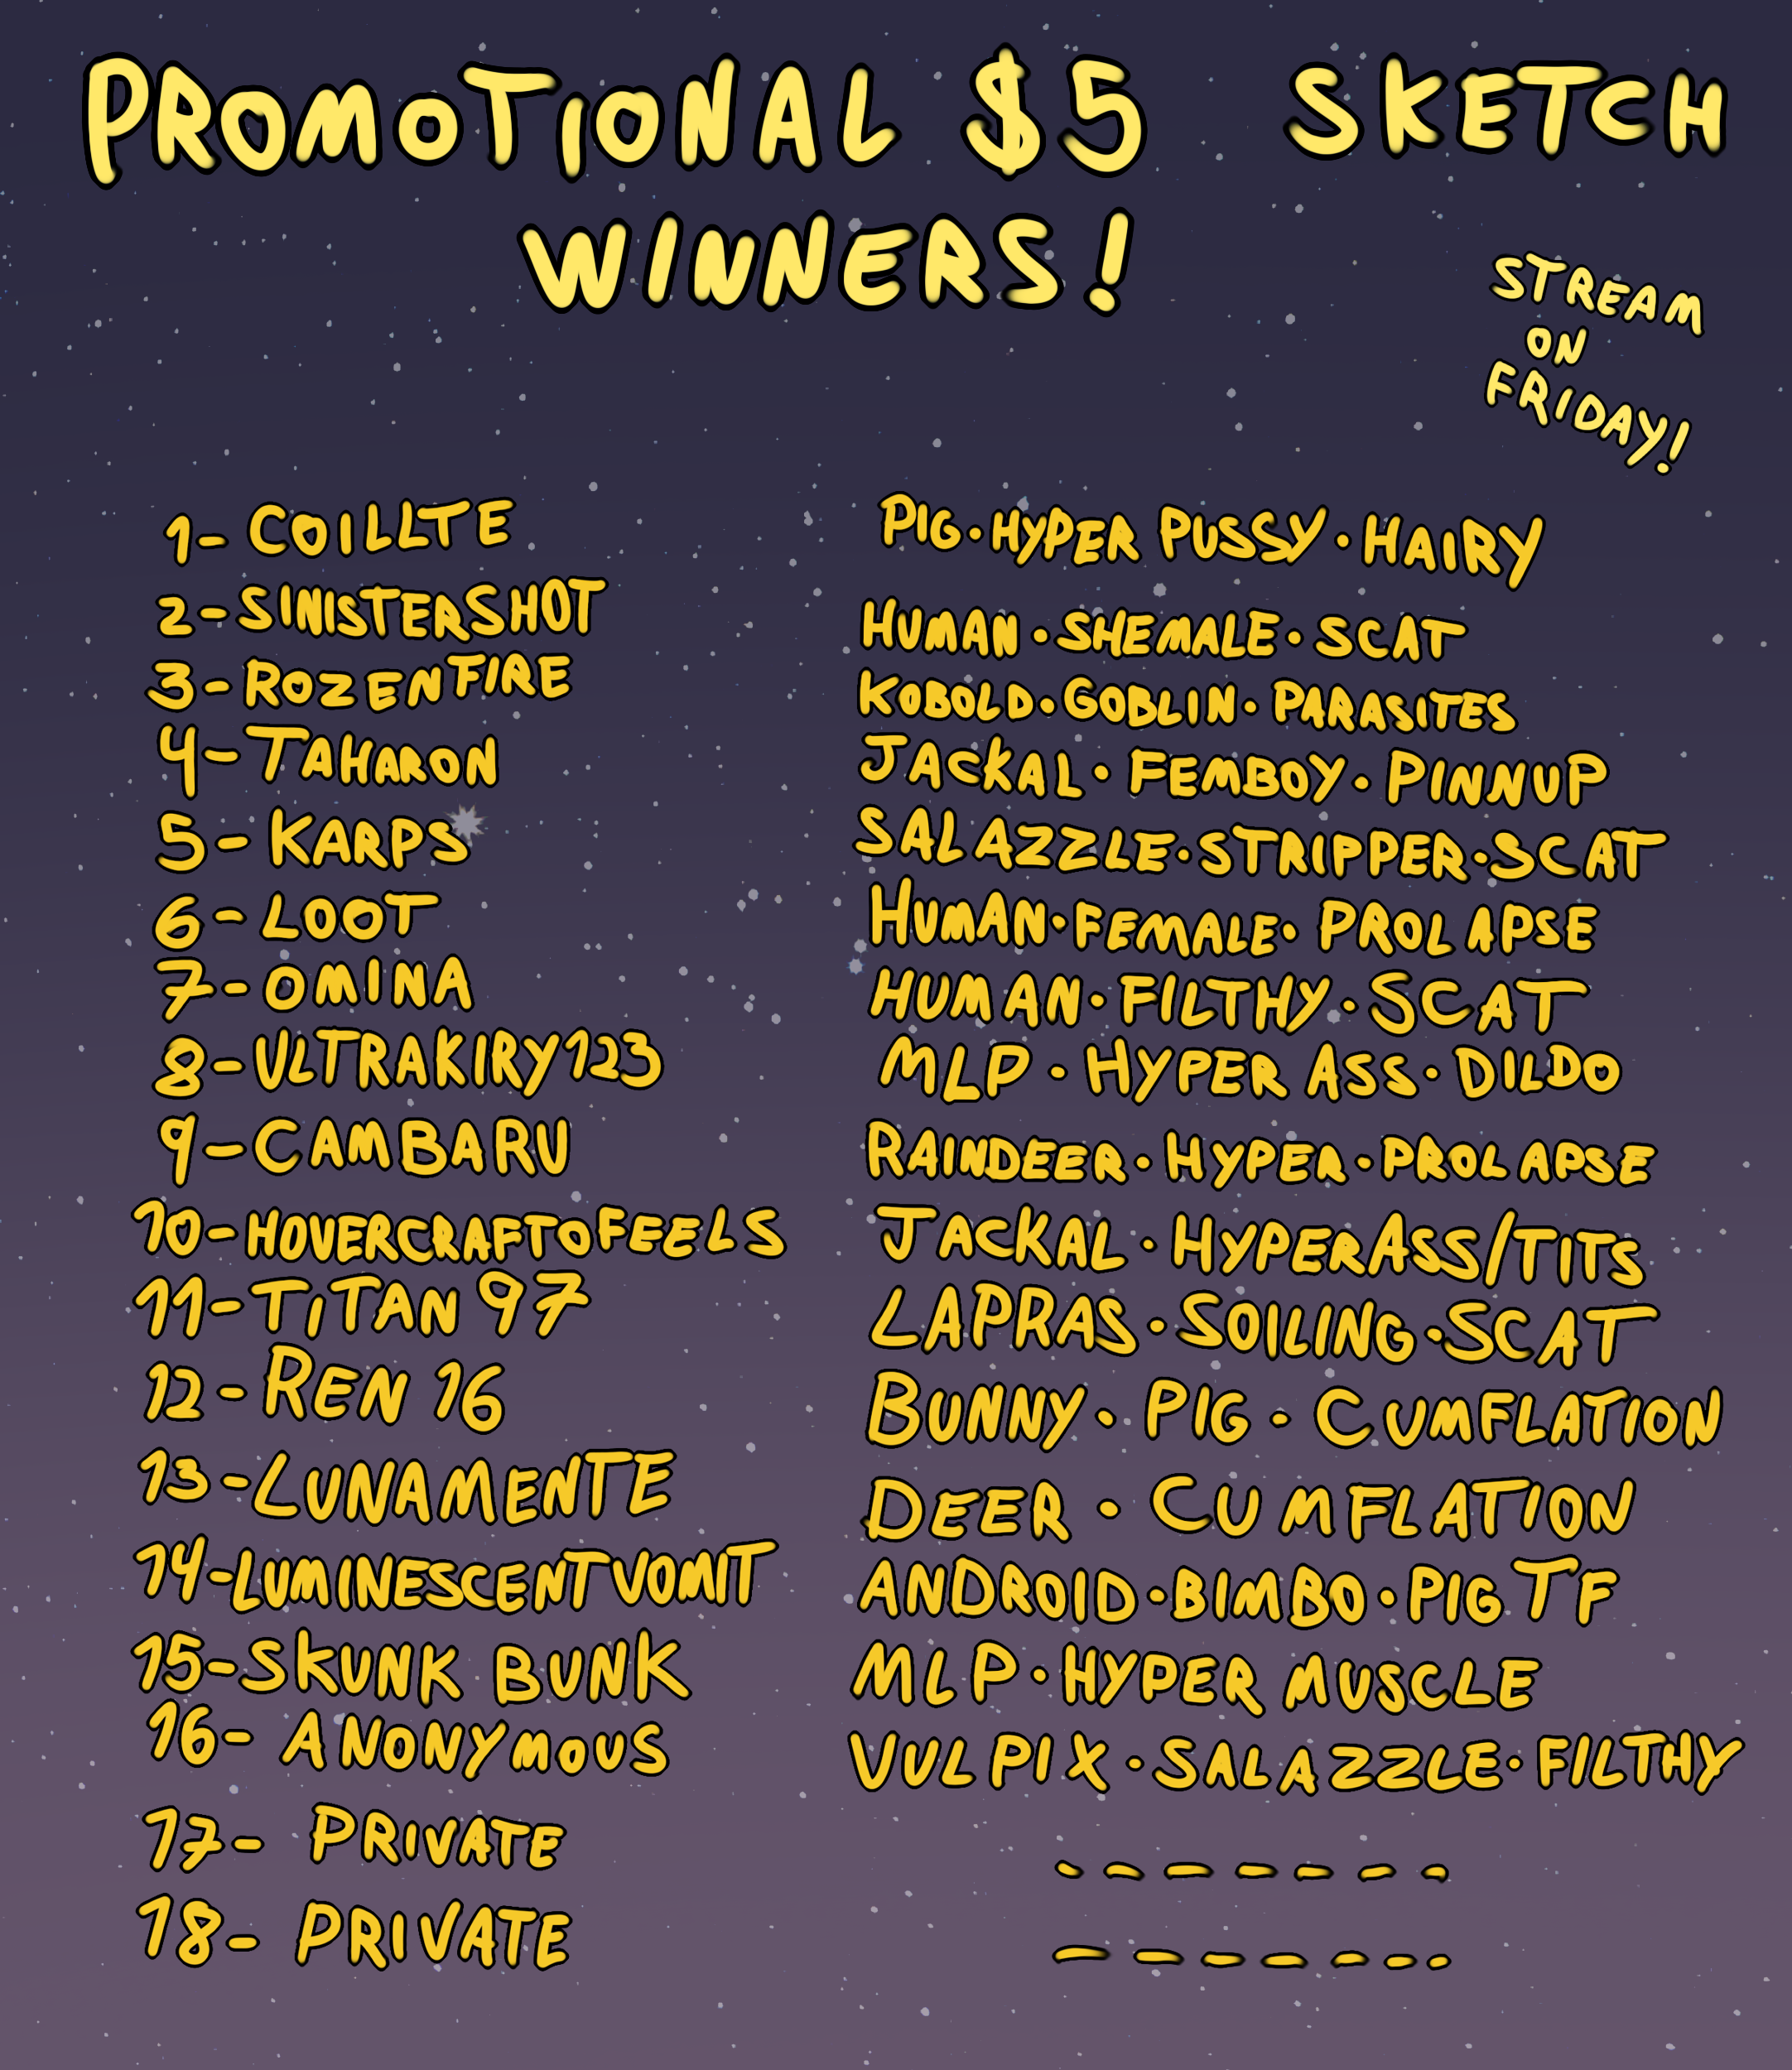 PROMOTIONAL $5 SKETCH
WINNERS!
STREAM
ON
FRIDAY!
1- COILLTE PIG • HYPER PUSSY • HAIRY
2- SINISTERSHOT HUMAN • SHEMALE • SCAT
3- ROZENFIRE KOBOLD • GOBLIN • PARASITES
4- TAHARON JACKAL • FEMBOY • PINNUP
5- KARPS SALAZZLE • STRIPPER • SCAT
6- LOOT HUMAN • FEMALE • PROLAPSE
7- OMINA HUMAN • FILTHY • SCAT
8- ULTRAKIRY123 MLP • HYPER ASS • DILDO
9- CAMBARU RAINDEER • HYPER • PROLAPSE
10- HOVERCRAFTOFEELS JACKAL • HYPERASS/TITS
11- TITAN 97 LAPRAS • SOILING • SCAT
12- REN 16 BUNNY • PIG • CUMFLATION
13- LUNAMENTE DEER • CUMFLATION
14- LUMINESCENTVOMIT ANDROID • BIMBO • PIG TF
15- SKUNK BUNK MLP • HYPER MUSCLE
16- ANONYMOUS VULPIX • SALAZZLE • FILTHY
17- PRIVATE - - - - - - -
18- PRIVATE - - - - - - -